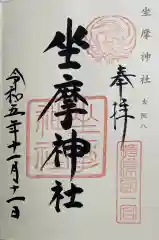 坐摩神社
奉拝
坐摩神社
令和五年十一月十一日
摂津国一宮